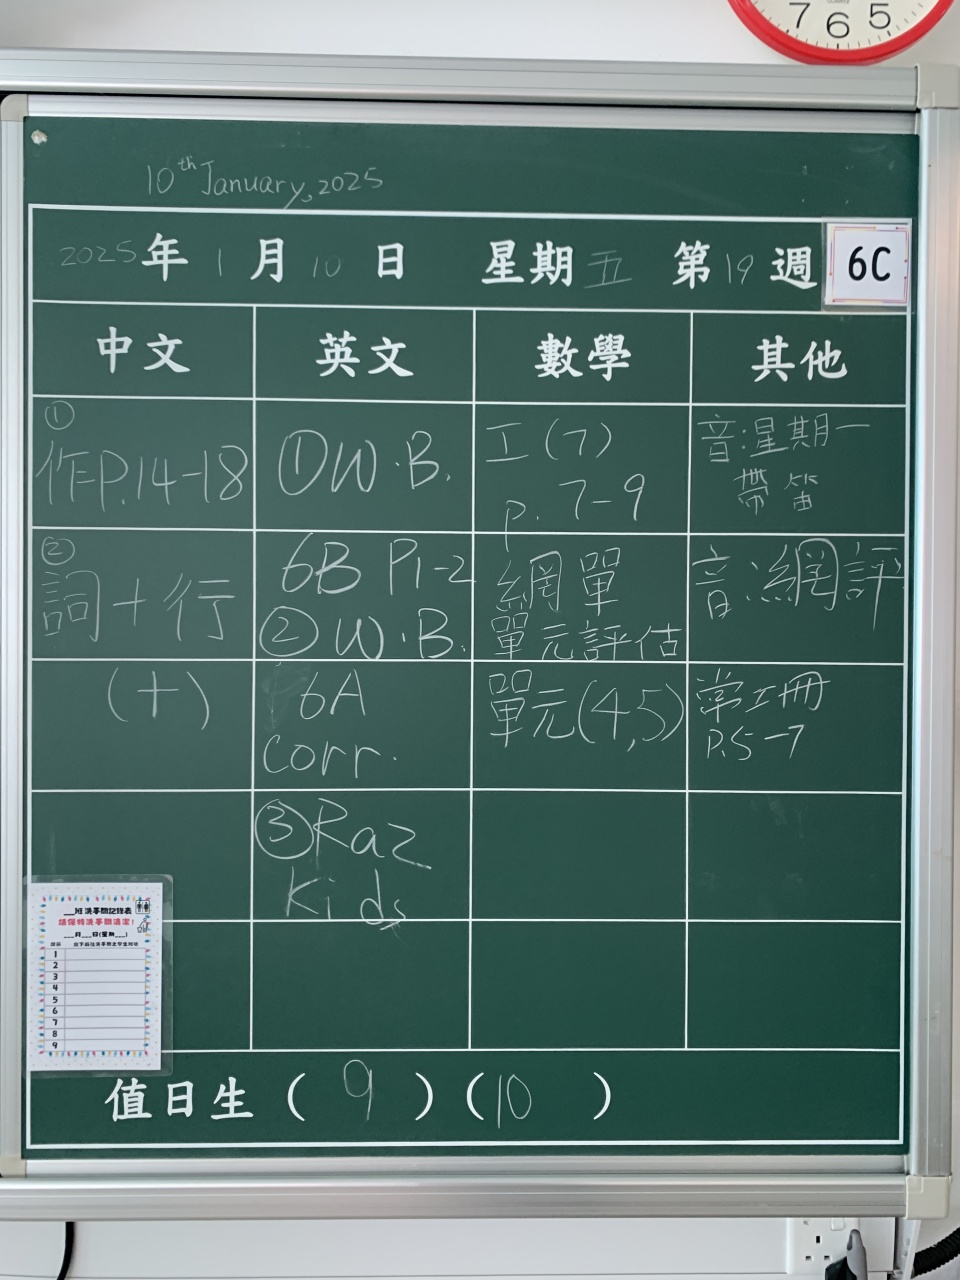 7 6 5
10th January, 2025
2025年 1月 10日 星期五 第19週
6C
中文 英文 數學 其他
①
作P.14-18
②
詞+行
(十)
①W.B.
6B P1-2
②W.B.
6A
corr.
③Raz
Kids
工(7)
p. 7-9
網單
單元評估
單元(4,5)
音:星期一
帶笛
音:網評
常工冊
P.5-7
___班洗手間記錄表
請保持洗手間清潔!
___月___日(星期___)
1
2
3
4
5
6
7
8
9
值日生 ( 9 ) ( 10 )